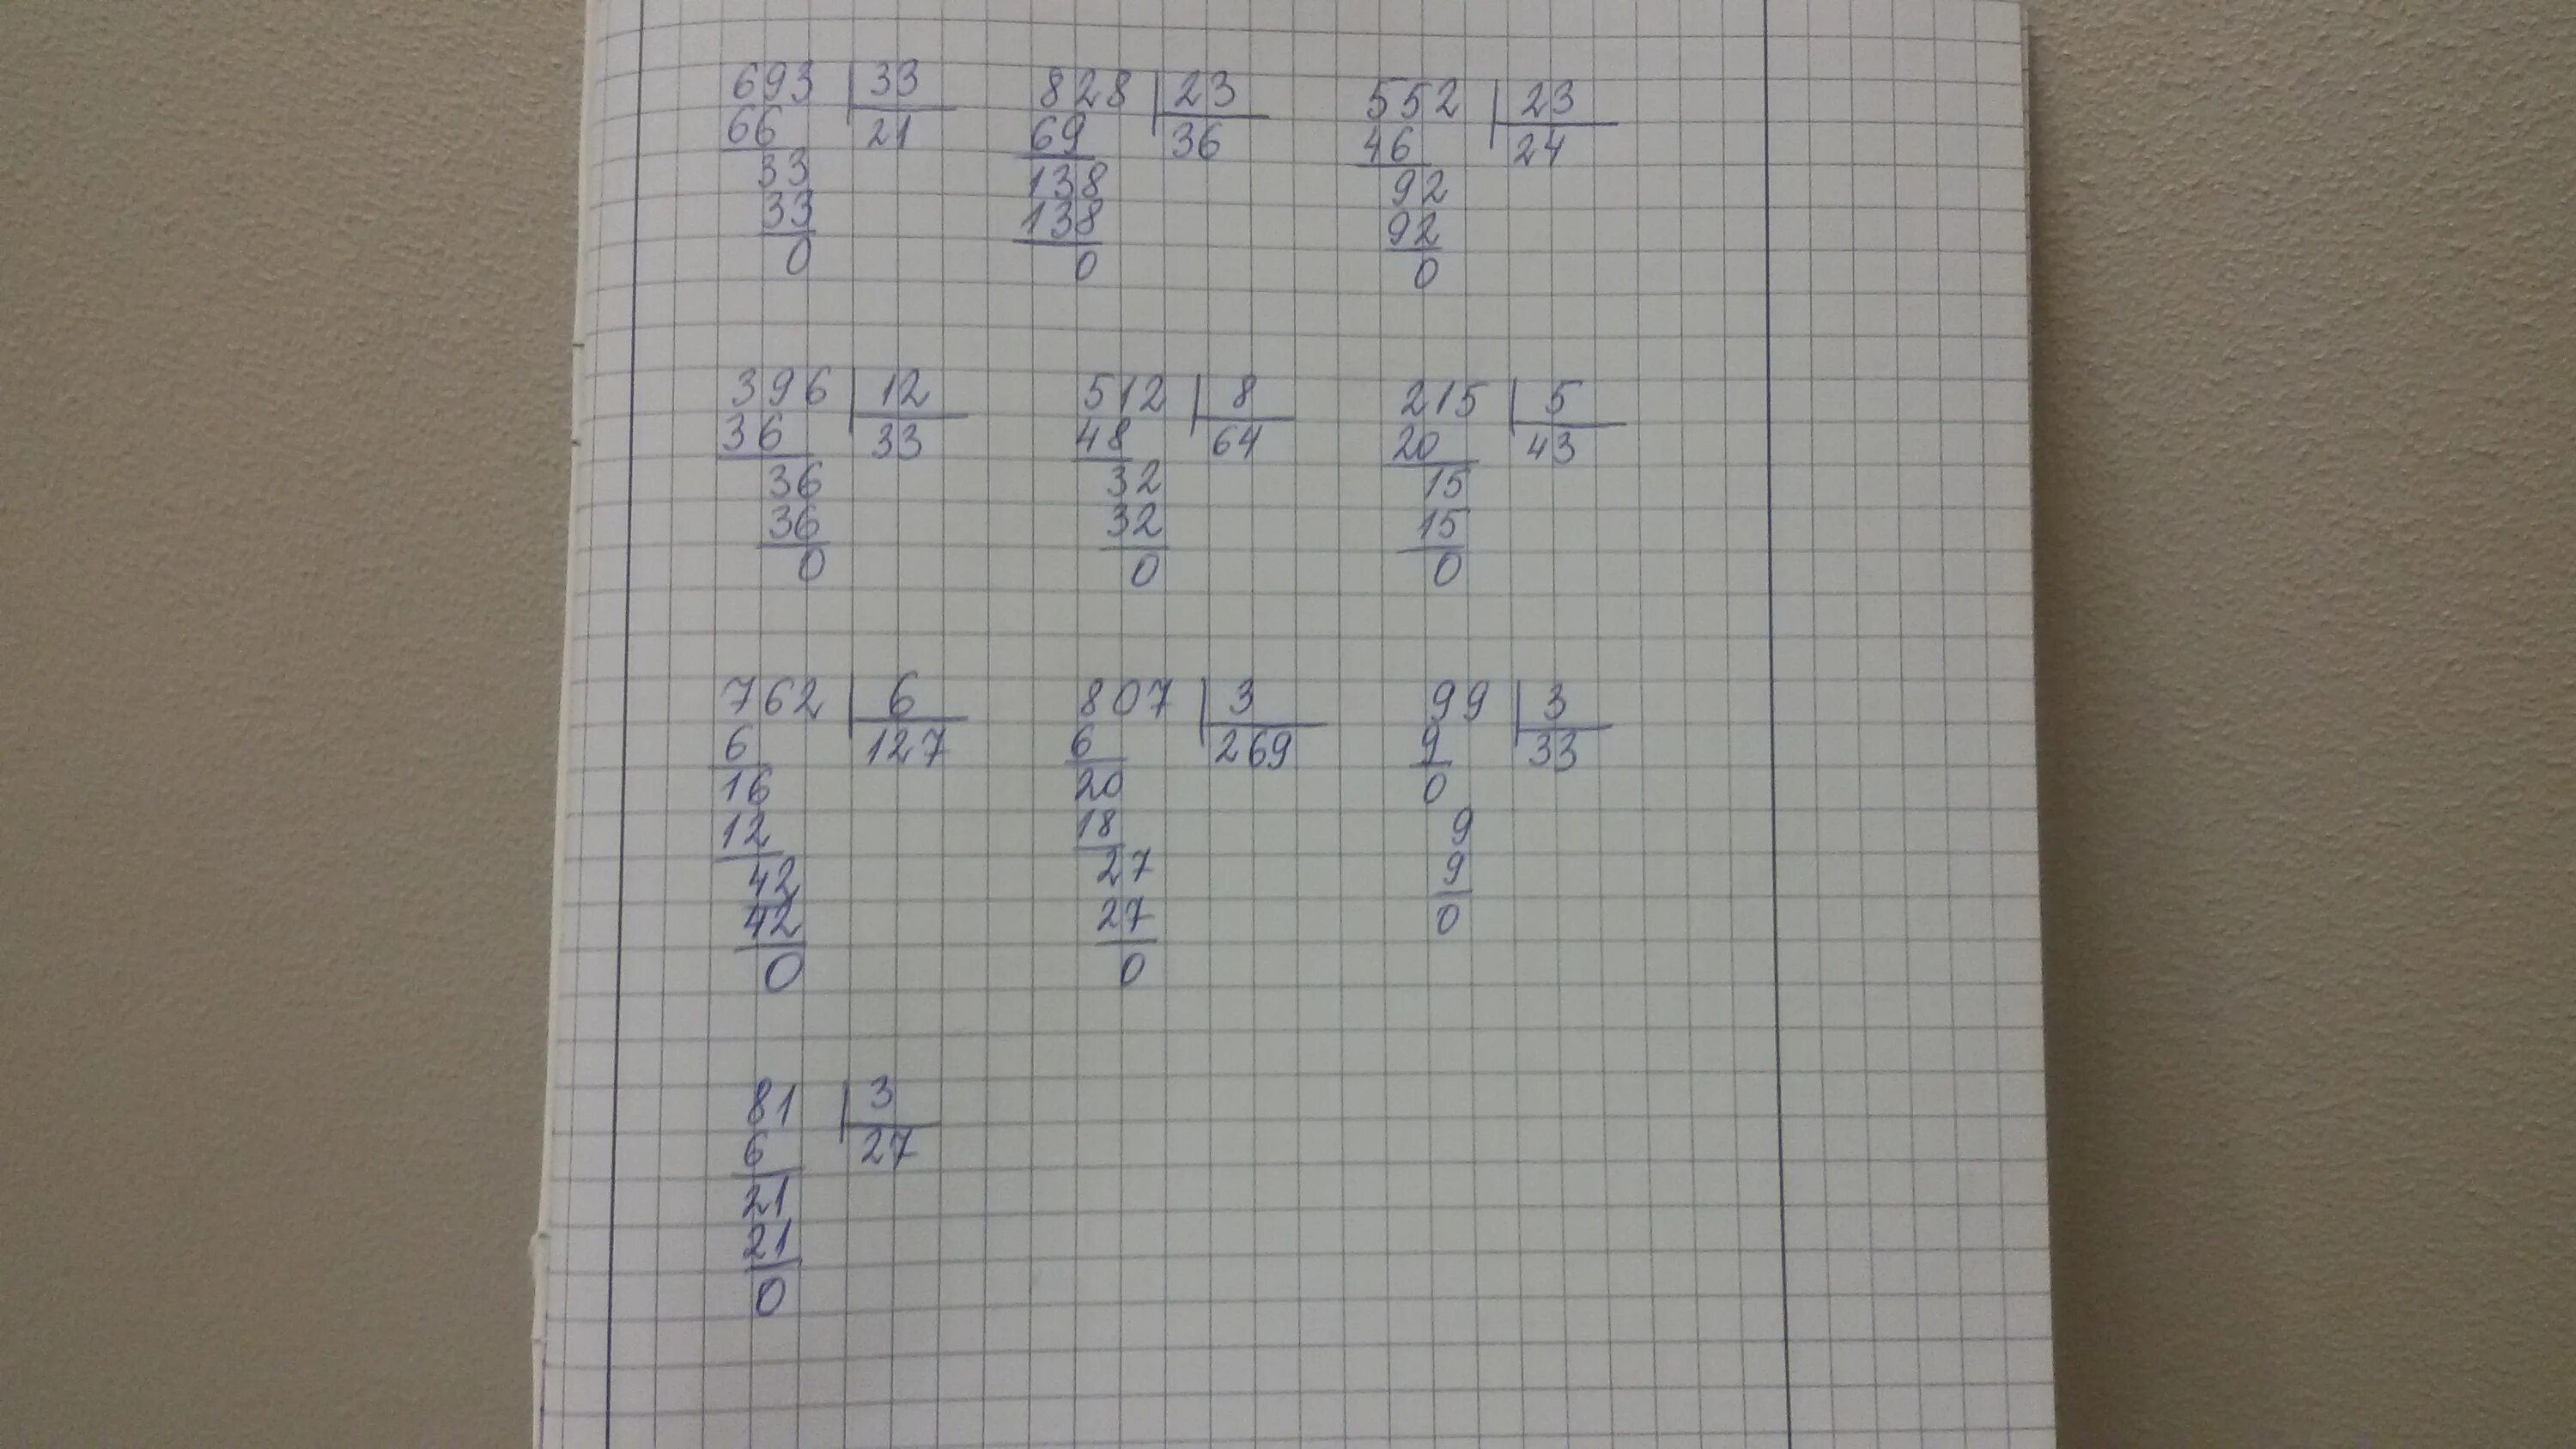 693 33 828 23 552 23
66 21 69 36 46 24
33 138 92
33 138 92
0 0 0
396 12 512 8 215 5
36 33 48 64 20 43
36 32 15
36 32 15
0 0 0
762 6 807 3 99 3
6 127 6 269 9 33
16 20 0
12 18 9
42 27 9
42 27 0
0 0
81 3
6 27
21
21
0